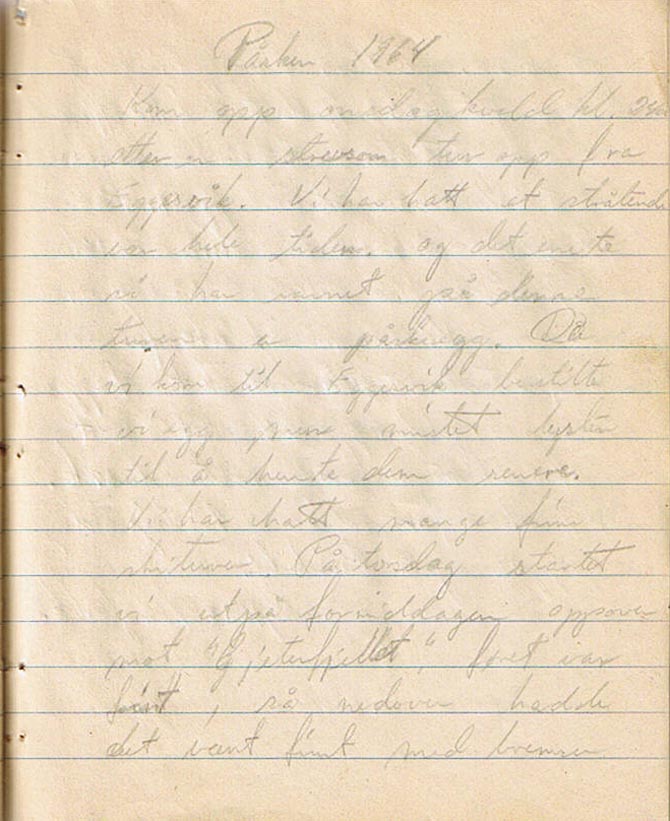 Påsken 1964
Kom opp onsdag kveld kl.
etter en strevsom tur opp fra
Eggesvik. Vi har hatt et strålende
vær hele tiden, og det eneste
vi har savnet på denne
turen er påskeegg. Da
vi kom til Eggesvik bestilte
vi egg men mistet lysten
til å hente dem senere.
Vi har hatt mange fine
skiturer. På torsdag startet
vi utpå formiddagen oppover
mot "Gjeterfjellet", føret var
fint, så nedover hadde
det vært fint med bremser